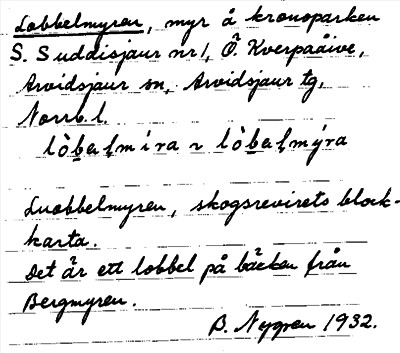 Lobbelmyren, myr å kronoparken
S. Suddisjaur nr 1, Ö. Kverpaåive,
Arvidsjaur sn, Arvidsjaur tg,
Norrb. l.
lòbelmíra ~ lòbelmýra
Luobbelmyren, skogsrevirets block-
karta.
Det är ett lobbel på bäcken från
Bergmyren.
B. Nygren 1932.